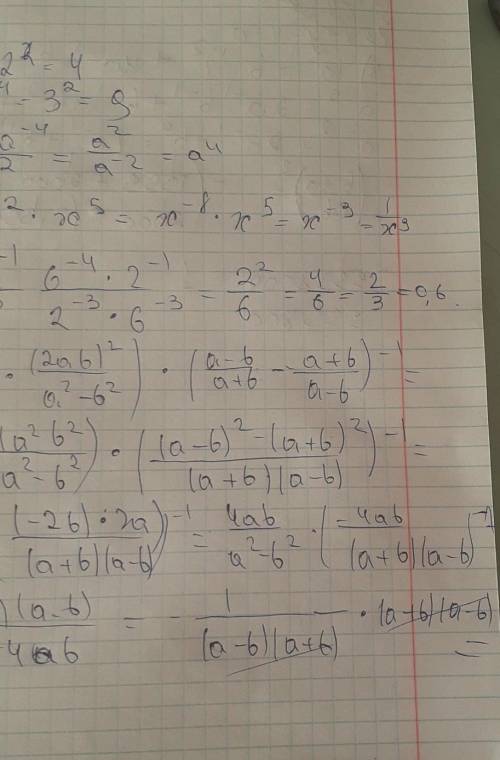 2² = 4
= 3² = 9
a⁻⁴/2 = a²/a⁻² = a⁴
² · x⁵ = x⁻⁸ · x⁵ = x⁻³ = 1/x³
⁻¹ (6⁻⁴ · 2⁻¹)/(2⁻³ · 6⁻³) = 2²/6 = 4/6 = 2/3 = 0,6.
· (2ab)²/(a² - b²)) · ((a-b)/(a+b) - (a+b)/(a-b))⁻¹ =
(a²b²)/(a² - b²)) · (((a-b)² - (a+b)²)/((a+b)(a-b)))⁻¹ =
((-2b) · 2a)/((a+b)(a-b))⁻¹ = 4ab/(a² - b²) · (-4ab/((a+b)(a-b)))⁻¹
)(a-b)/(-4ab) = - 1/((a-b)(a+b)) · (a+b)(a-b) =